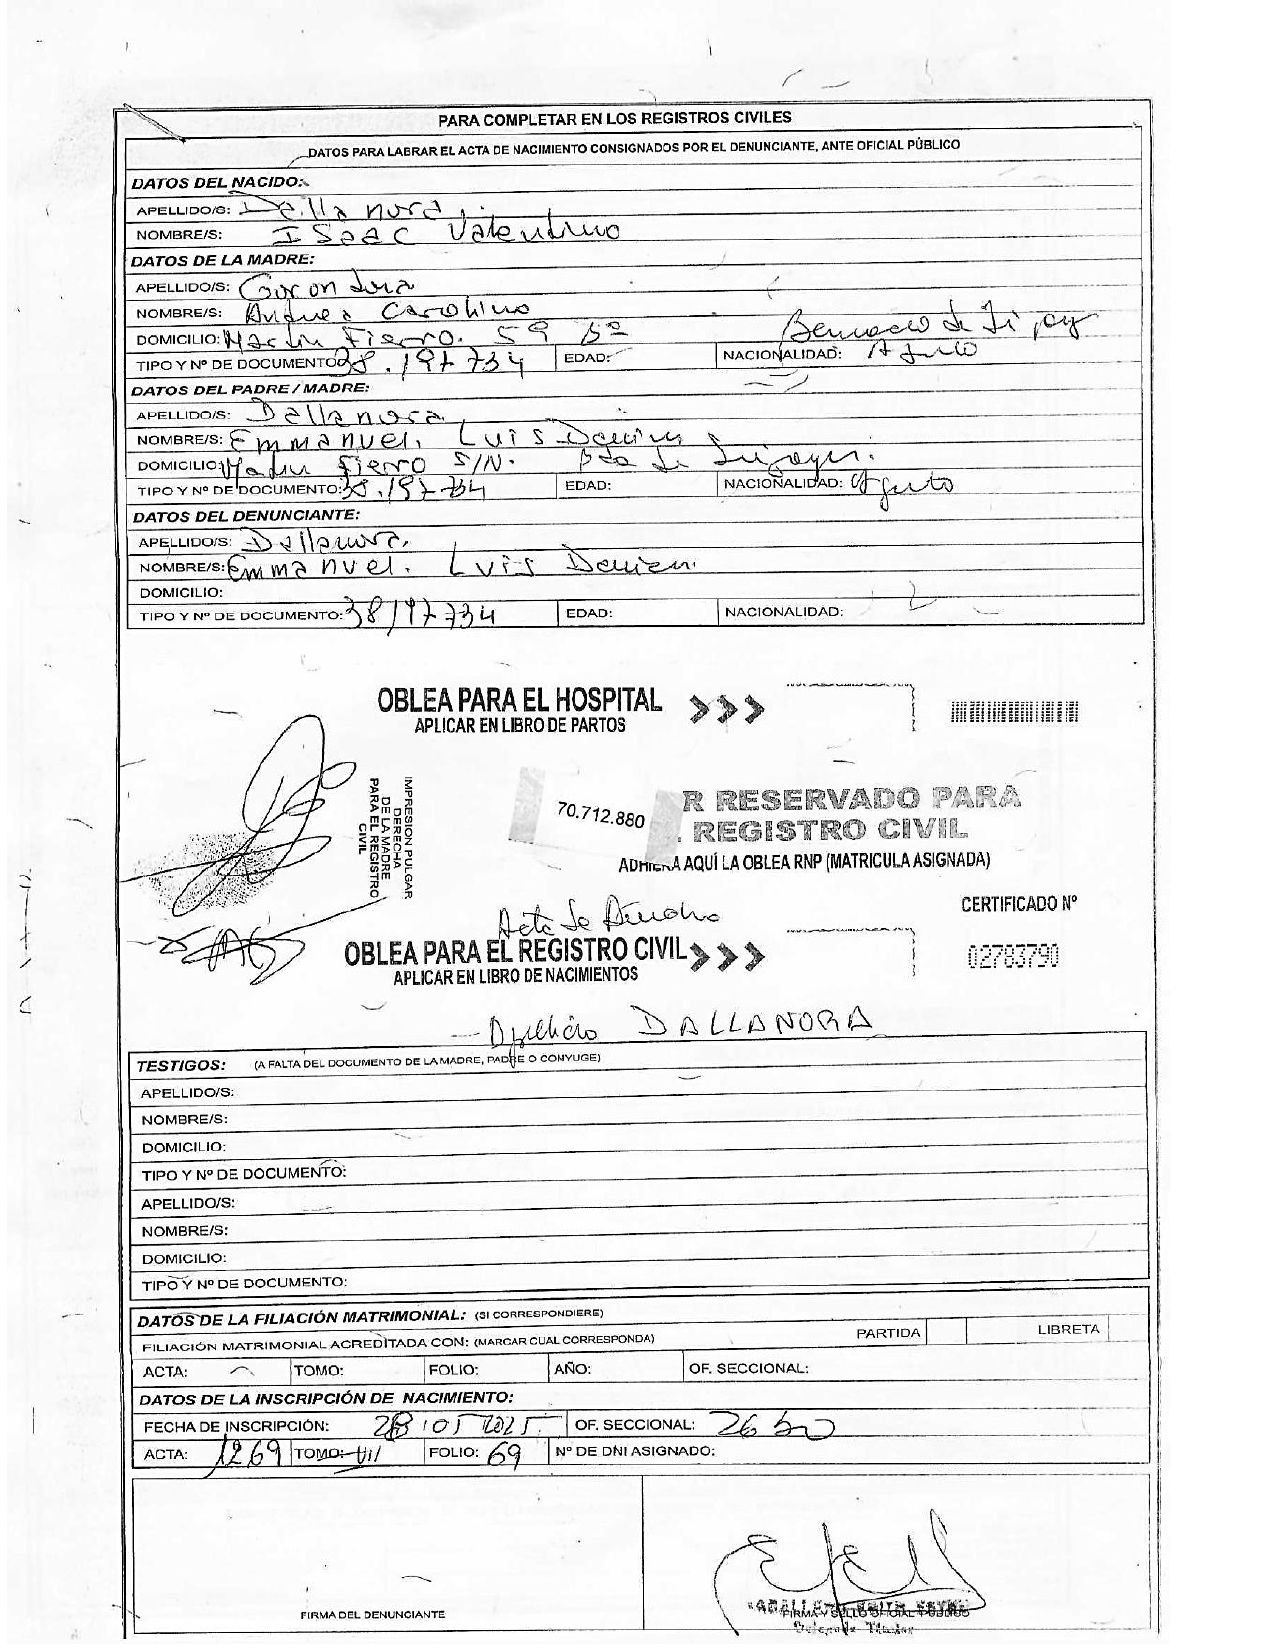 PARA COMPLETAR EN LOS REGISTROS CIVILES
DATOS PARA LABRAR EL ACTA DE NACIMIENTO CONSIGNADOS POR EL DENUNCIANTE, ANTE OFICIAL PÚBLICO
DATOS DEL NACIDO:
APELLIDO/S: Dallanora
NOMBRE/S: ISaac Valentino
DATOS DE LA MADRE:
APELLIDO/S:
NOMBRE/S: Carolina
DOMICILIO: Martin Fierro. 59 Bº Bernardo de
TIPO Y Nº DE DOCUMENTO: 38.197.734 EDAD: NACIONALIDAD:
DATOS DEL PADRE / MADRE:
APELLIDO/S: Dallanora
NOMBRE/S: Emmanuel. Luis Damian
DOMICILIO: Martin Fierro S/N.
TIPO Y Nº DE DOCUMENTO: 38.197.734 EDAD: NACIONALIDAD:
DATOS DEL DENUNCIANTE:
APELLIDO/S: Dallanora.
NOMBRE/S: Emmanuel. Luis Damian
DOMICILIO:
TIPO Y Nº DE DOCUMENTO: 38197734 EDAD: NACIONALIDAD:
OBLEA PARA EL HOSPITAL
APLICAR EN LIBRO DE PARTOS
IMPRESION PULGAR
DERECHA
DE LA MADRE
PARA EL REGISTRO
CIVIL
70.712.880
R RESERVADO PARA
REGISTRO CIVIL
ADHIERA AQUÍ LA OBLEA RNP (MATRICULA ASIGNADA)
CERTIFICADO Nº
02783790
OBLEA PARA EL REGISTRO CIVIL
APLICAR EN LIBRO DE NACIMIENTOS
Apellido DALLANORA
TESTIGOS: (A FALTA DEL DOCUMENTO DE LA MADRE, PADRE O CONYUGE)
APELLIDO/S:
NOMBRE/S:
DOMICILIO:
TIPO Y Nº DE DOCUMENTO:
APELLIDO/S:
NOMBRE/S:
DOMICILIO:
TIPO Y Nº DE DOCUMENTO:
DATOS DE LA FILIACIÓN MATRIMONIAL: (SI CORRESPONDIERE)
FILIACIÓN MATRIMONIAL ACREDITADA CON: (MARCAR CUAL CORRESPONDA) PARTIDA LIBRETA
ACTA: TOMO: FOLIO: AÑO: OF. SECCIONAL:
DATOS DE LA INSCRIPCIÓN DE NACIMIENTO:
FECHA DE INSCRIPCIÓN: 28 05 2025 OF. SECCIONAL:
ACTA: 1269 TOMO: VII FOLIO: 69 Nº DE DNI ASIGNADO:
FIRMA DEL DENUNCIANTE
FIRMA Y SELLO OFICIAL PÚBLICO
Delegada Titular